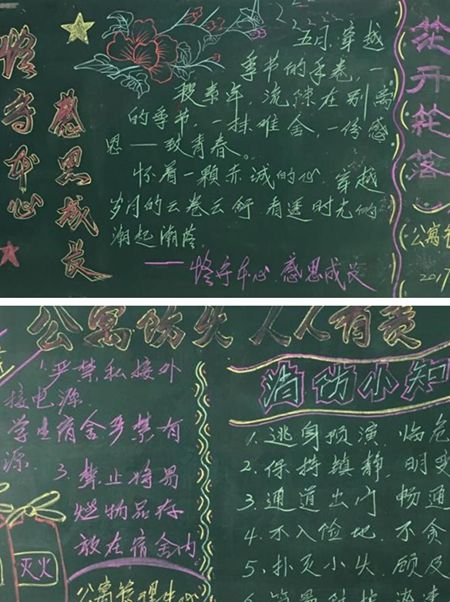 恪守本心
感恩成长
五月,穿越
季节的手卷,一
的季节,一抹难舍,一份感
恩——致青春。
怀着一颗赤诚的心,穿越
岁月的云卷云舒,看透时光的
潮起潮落。
——恪守本心 感恩成长
花开花落
公寓管
2017
公寓防火 人人有责
1.严禁私接外
接电源
学生宿舍严禁有
源.
3.禁止将易
燃物品存
放在宿舍内
灭火
公寓管理中心
消防小知
1.逃身预演,临危
2.保持镇静,明
3.通道出口,畅通
4.不入险地,不贪
5.扑灭小火,顾及